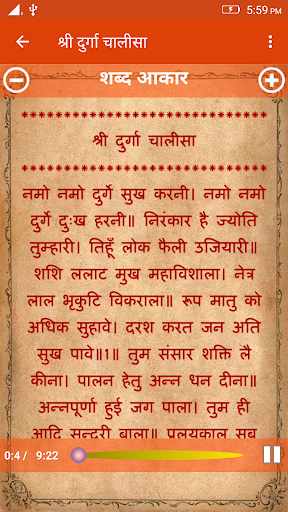 5:59 PM
श्री दुर्गा चालीसा
शब्द आकार
********************************
श्री दुर्गा चालीसा
********************************
नमो नमो दुर्गे सुख करनी। नमो नमो
दुर्गे दुःख हरनी॥ निरंकार है ज्योति
तुम्हारी। तिहूँ लोक फैली उजियारी॥
शशि ललाट मुख महाविशाला। नेत्र
लाल भृकुटि विकराला॥ रूप मातु को
अधिक सुहावे। दरश करत जन अति
सुख पावे॥1॥ तुम संसार शक्ति लै
कीना। पालन हेतु अन्न धन दीना॥
अन्नपूर्णा हुई जग पाला। तुम ही
आदि सुन्दरी बाला॥ प्रलयकाल सब
0:4 / 9:22